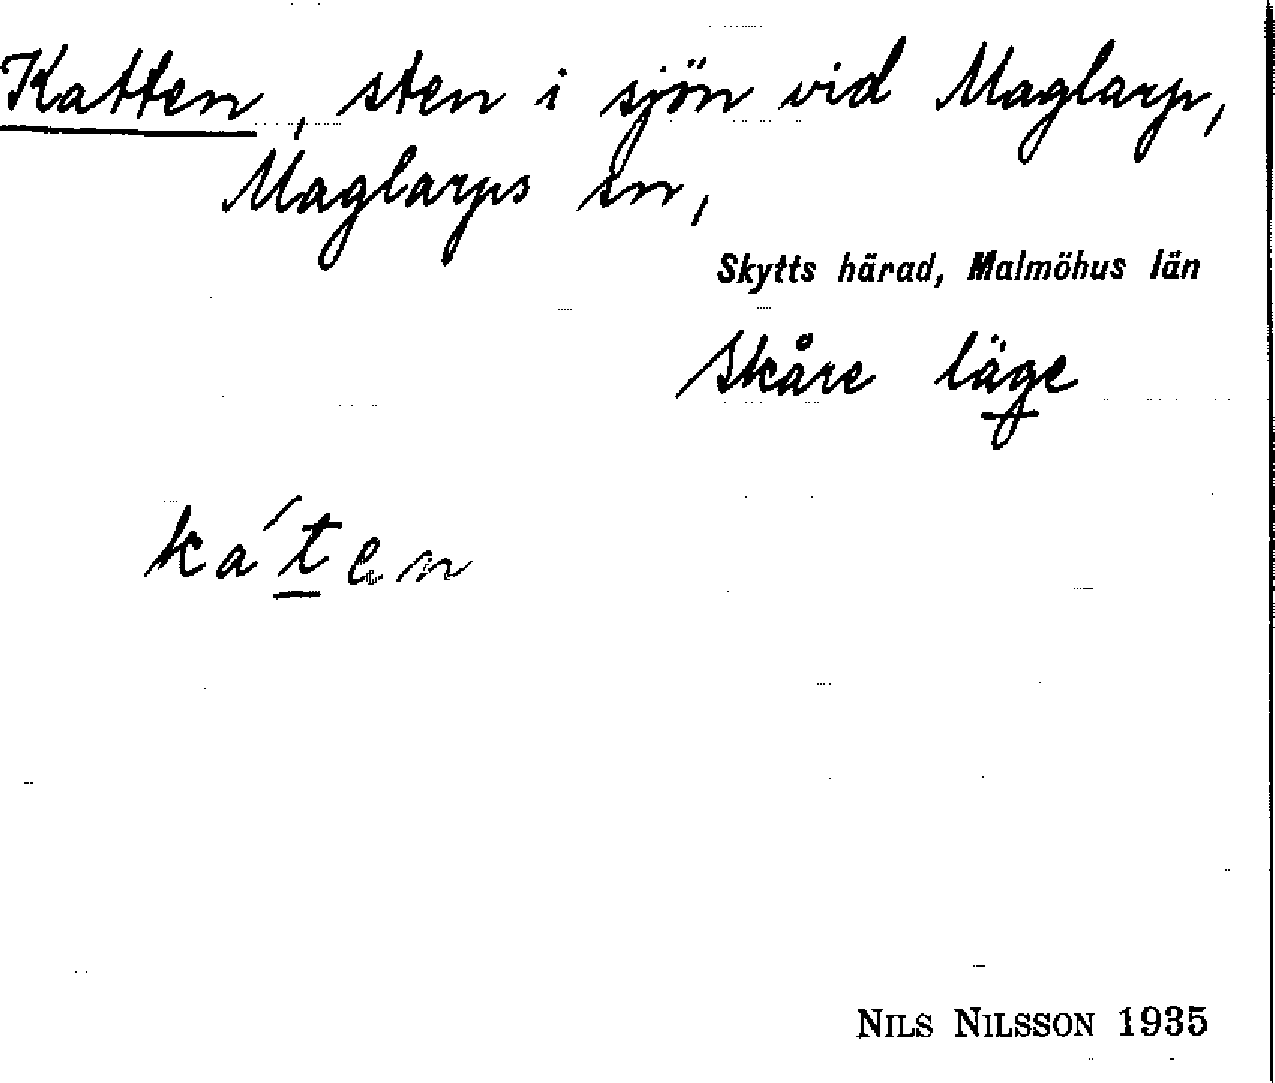 Katten, sten i sjön vid Maglarp,
Maglarps sn,
Skytts härad, Malmöhus län
Skåre läge
ka´ten
NILS NILSSON 1935